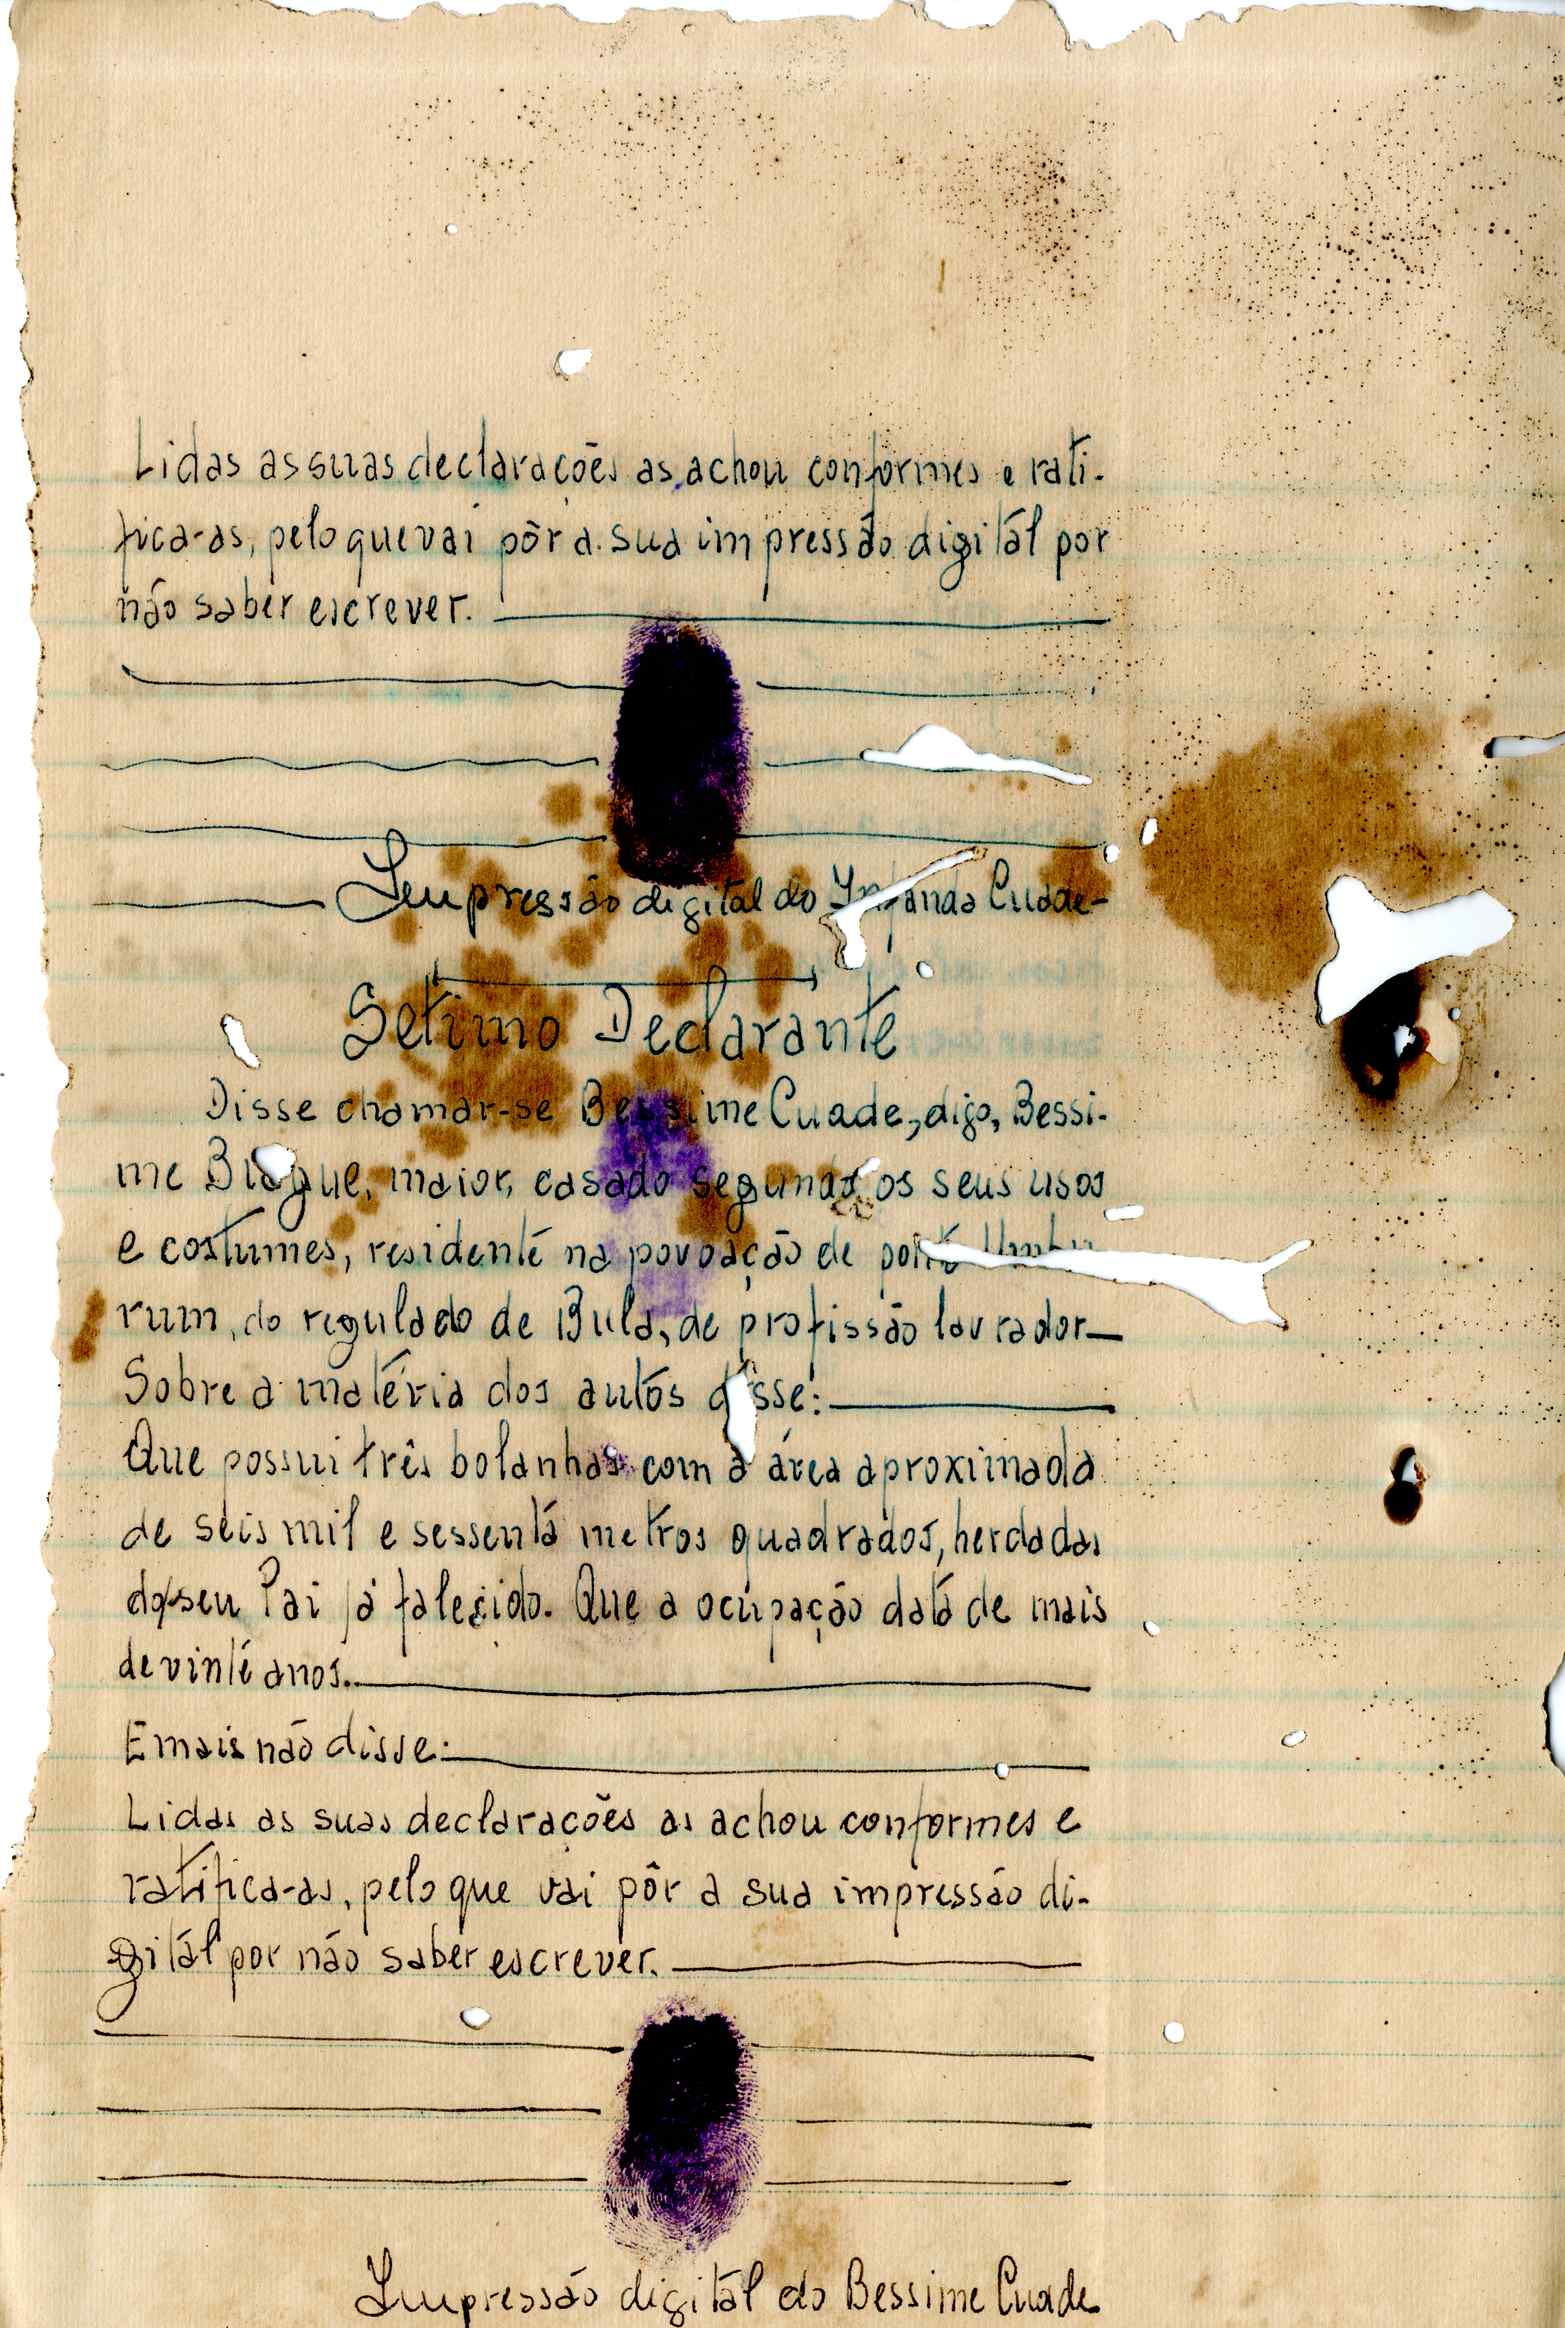 Lidas as suas declarações as achou conformes e rati-
fica-as, pelo que vai pôr a sua impressão digitál por
não saber escrever.
Impressão digital do Cuade-
Setimo Declarante
Disse chamar-se Bessime Cuade, digo, Bessi-
me Biague, maior, casado segundo os seus usos
e costumes, residenté na povoação de
rum, do regulado de Bula, de profissão lavrador
Sobre a matéria dos autós disse:
Que possui três bolanhas com a área aproximada
de seis mil e sessentá metros quadrados, herdadas
do seu Pai já falecido. Que a ocupação datá de mais
de vinté anos.
E mais não disse:
Lidas as suas declarações as achou conformes e
ratifica-as, pelo que vai pôr a sua impressão di-
gitál por não saber escrever.
Impressão digitál do Bessime Cuade